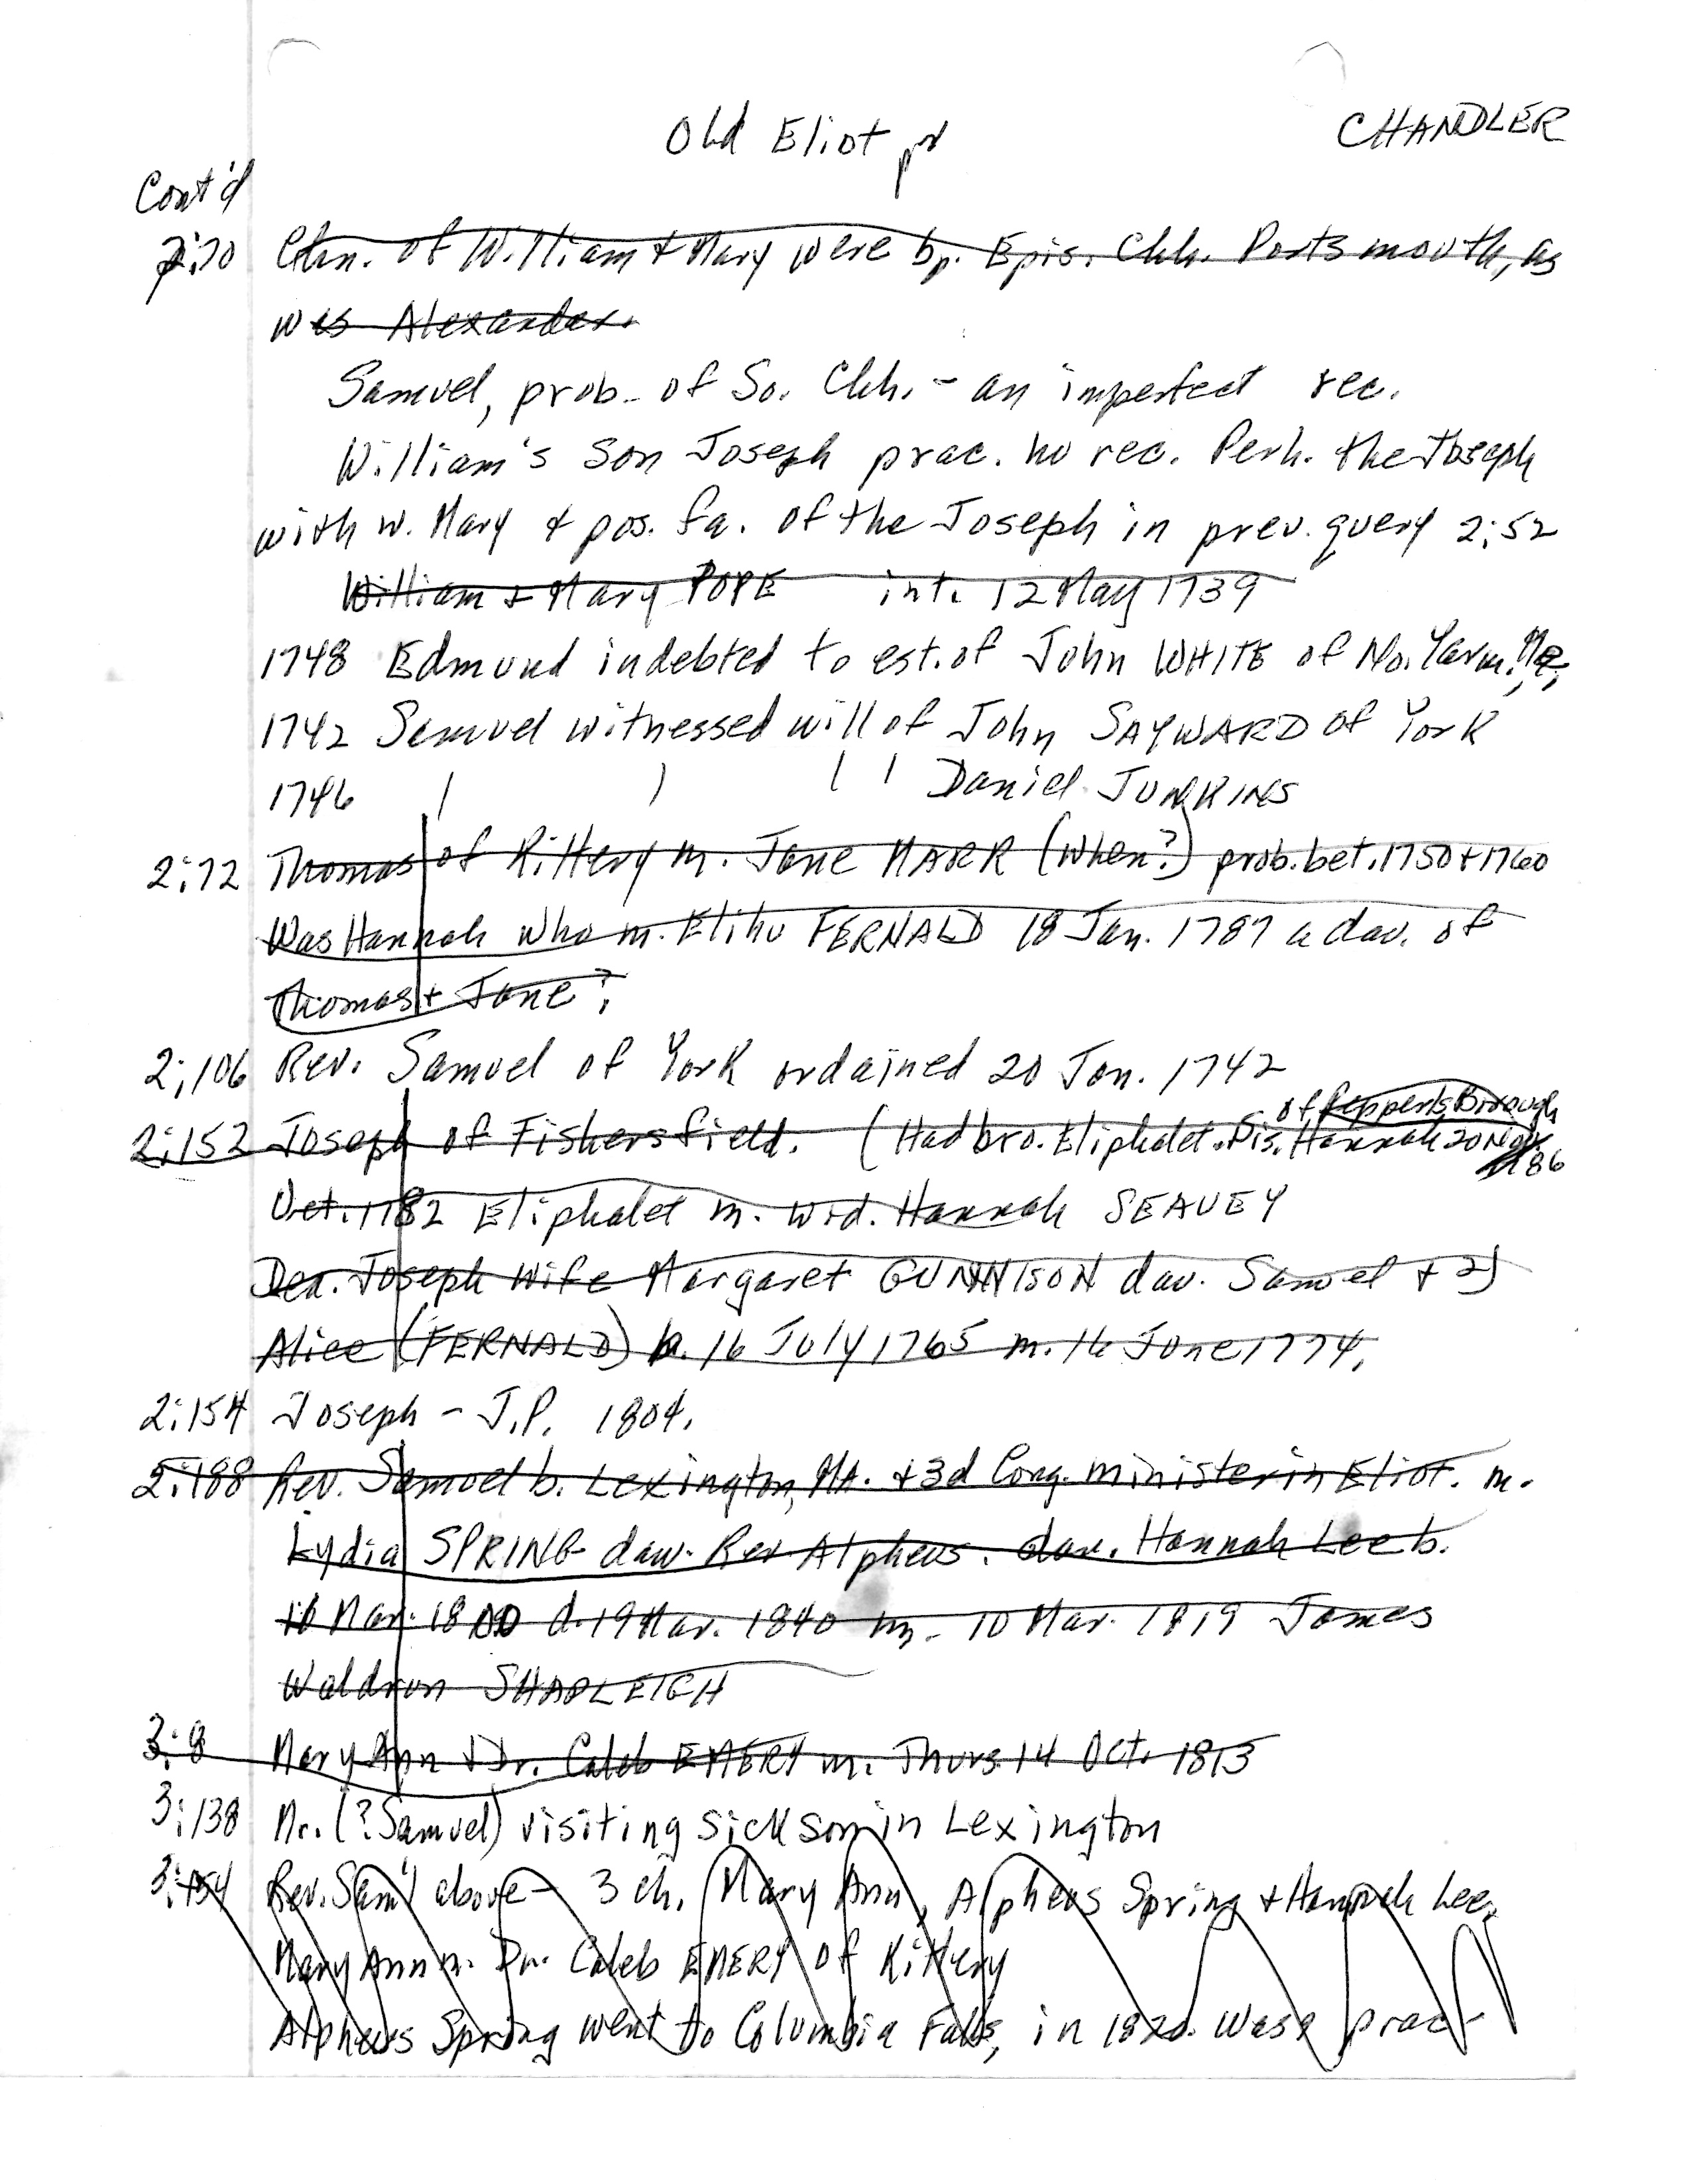 Old Eliot pd
CHANDLER
Cont'd
2:70 Chn. of William + Mary were bp. Epis. Chh. Portsmouth, as
was Alexander.
Samuel, prob. of So. Chh. - an imperfect rec.
William's son Joseph prac. no rec. Perh. the Joseph
with w. Mary + pos. fa. of the Joseph in prev. query 2:52
William + Mary POPE int. 12 May 1739
1748 Edmund indebted to est. of John WHITE of No. Yarm. Me,
1742 Samuel witnessed will of John SAYWARD of York
1746 Daniel JUNKINS
2:72 Thomas of Kittery m. Jane MARR (When?) prob. bet. 1750 + 1760
Was Hannah who m. Elihu FERNALD 18 Jan. 1787 a dau. of
Thomas + Jane?
2:106 Rev. Samuel of York ordained 20 Jan. 1742
of Pepperls Borough
2:152 Joseph of Fishersfield. (Had bro. Eliphalet. Dis. Hannah 20 Nov.
86
Oct. 1782 Eliphalet m. Wid. Hannah SEAVEY
Dea. Joseph wife Margaret GUNNISON dau. Samuel + 2)
Alice (FERNALD) b. 16 July 1765 m. 16 June 1774.
2:154 Joseph - J.P. 1804.
2:188 Rev. Samuel b. Lexington, MA. + 3d Cong. minister in Eliot. m.
Lydia SPRING dau. Rev. Alpheus. dau. Hannah Lee b.
16 Mar. 1800 d. 19 Mar. 1840 m. 10 Mar. 1819 James
Waldron SHAPLEIGH
3:8 Mary Ann + Dr. Caleb EMERY m. Thurs. 14 Oct. 1813
3:138 Mr. (?Samuel) visiting sick son in Lexington
3:154 Rev. Sam'l above - 3 ch. Mary Ann, Alpheus Spring + Hannah Lee.
Mary Ann m. Dr. Caleb EMERY of Kittery
Alpheus Spring went to Columbia Falls, in 1820. Was a prac-